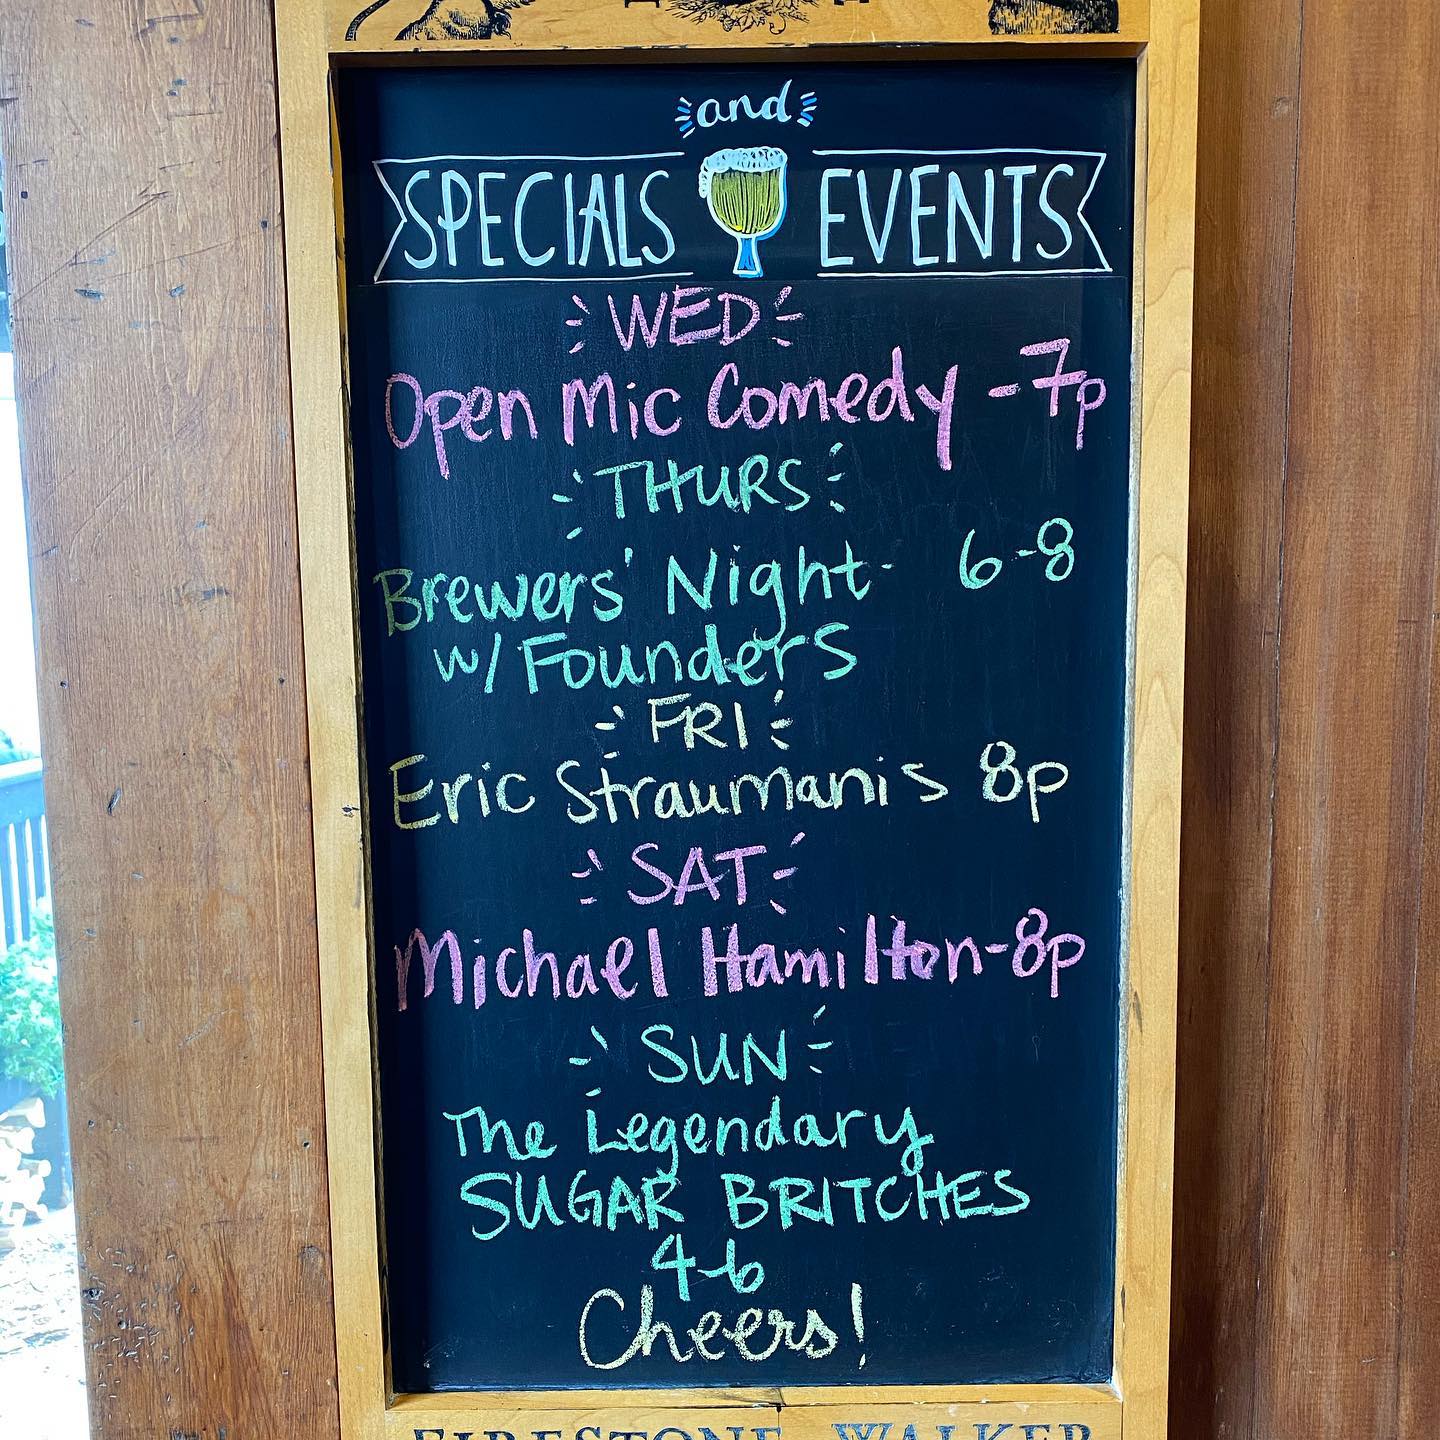 and
SPECIALS EVENTS
WED
Open Mic Comedy - 7p
THURS
Brewers' Night - 6-8
w/ Founders
FRI
Eric Straumanis 8p
SAT
Michael Hamilton - 8p
SUN
The Legendary
SUGAR BRITCHES
4-6
Cheers!
FIRESTONE WALKER